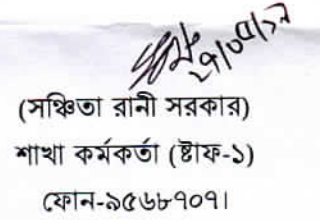 (সঞ্চিতা রানী সরকার)
শাখা কর্মকর্তা (ষ্টাফ-১)
ফোন-৯৫৬৮৭০৭।